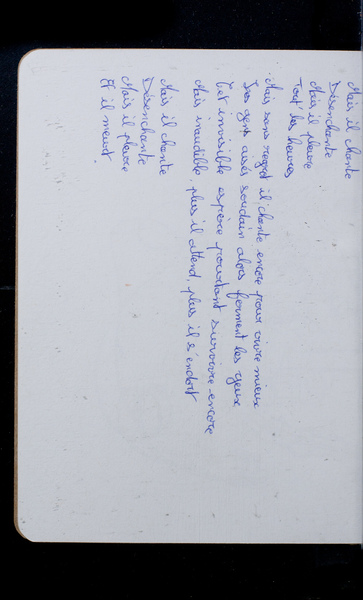 Mais il chante
Désenchante
Mais il pleure
Tout les heures
Mais sans regret il chante encore pour vivre mieux
Les gens usés soudain alors ferment les yeux
Cet invisible espère pourtant survivre encore
Mais inaudible, plus il attend, plus il s'endort
Mais il chante
Désenchante
Mais il pleure
Et il meurt